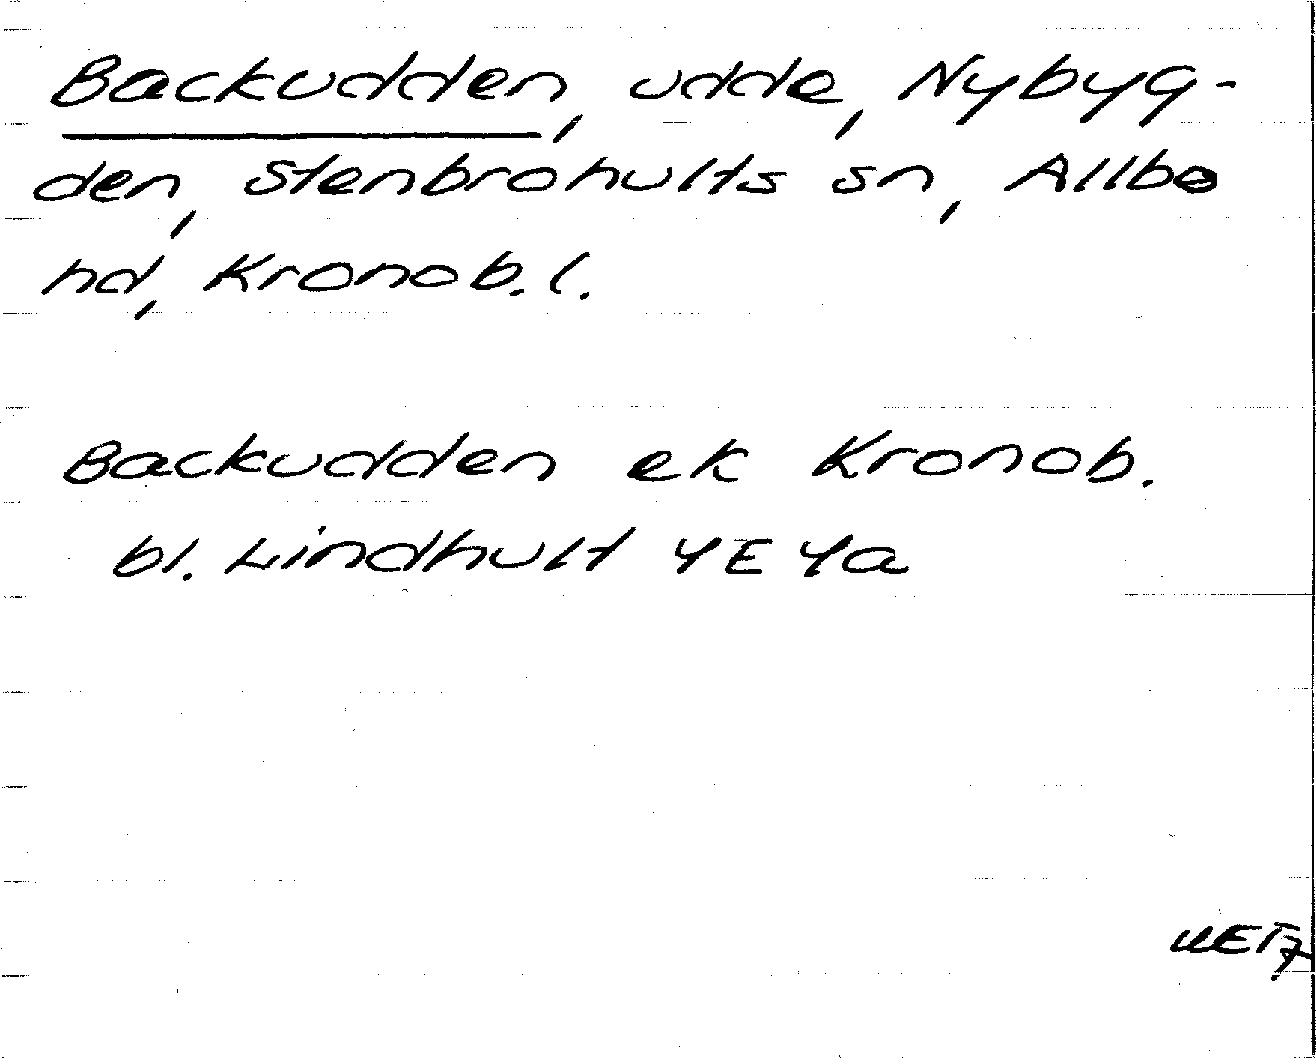 Backudden, udde, Nybyg-
den, Stenbrohults sn, Allbo
hd, Kronob. l.
Backudden ek Kronob.
bl. Lindhult 4E4a